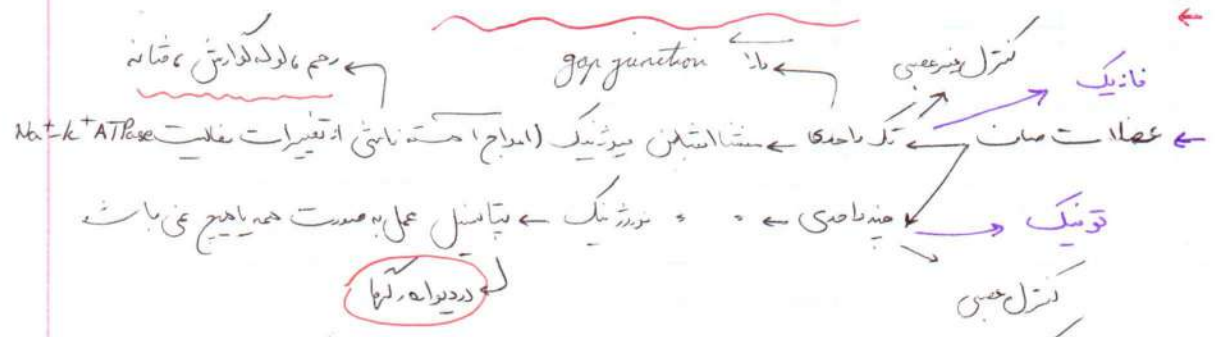 رحم، لوله گوارش، مثانه ← دارا gap junction ← کنترل غیرعصبی فازیک
← عضلات صاف ← تک واحدی ← منشا انقباض میوژنیک (امواج آهسته ناشی از تغییرات فعالیت Na⁺-K⁺ ATPase
چند واحدی ← " " نوروژنیک ← پتانسیل عمل به صورت همه یا هیچ نمی باشد → تونیک
در دیواره رگها
کنترل عصبی